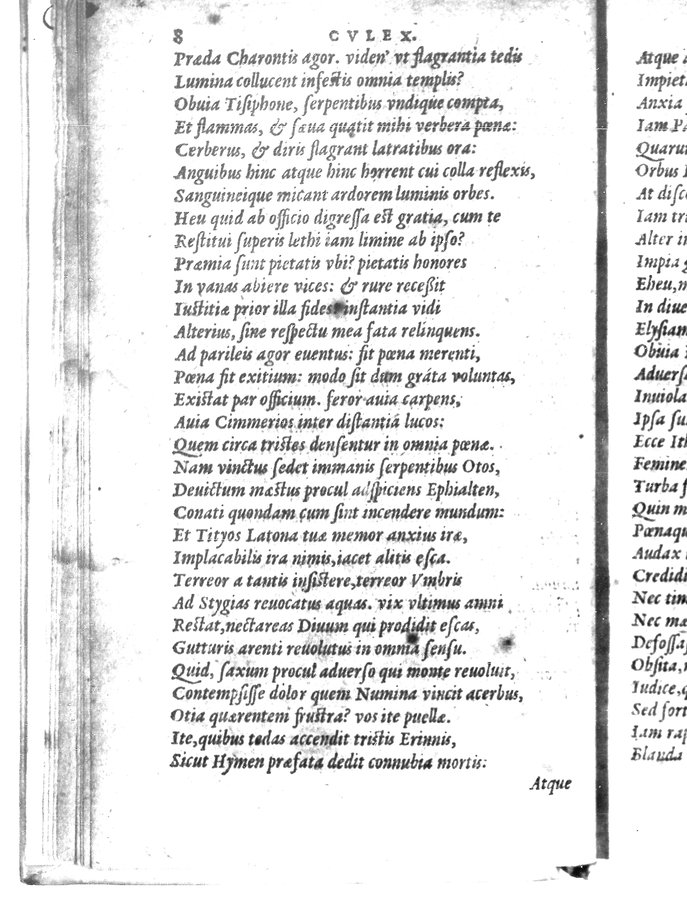 8 CVLEX.
Præda Charontis agor. viden' vt flagrantia tedis
Lumina collucent infestis omnia templis?
Obuia Tisiphone, serpentibus vndique compta,
Et flammas, & sæua quatit mihi verbera pœnæ:
Cerberus, & diris flagrant latratibus ora:
Anguibus hinc atque hinc horrent cui colla reflexis,
Sanguineique micant ardorem luminis orbes.
Heu quid ab officio digressa est gratia, cum te
Restitui superis lethi iam limine ab ipso?
Præmia sunt pietatis vbi? pietatis honores
In vanas abiere vices: & rure recessit
Iustitiæ prior illa fides instantia vidi
Alterius, sine respectu mea fata relinquens.
Ad parileis agor euentus: fit pœna merenti,
Pœna fit exitium: modo sit dum gráta voluntas,
Existat par officium. feror auia carpens,
Auia Cimmerios inter distantiá lucos:
Quem circa tristes densentur in omnia pœnæ.
Nam vinctus sedet immanis serpentibus Otos,
Deuictum mæstus procul adspiciens Ephialten,
Conati quondam cum sint incendere mundum:
Et Tityos Latona tuæ memor anxius iræ,
Implacabilis ira nimis, iacet alitis esca.
Terreor a tantis insistere, terreor Vmbris
Ad Stygias reuocatus aquas. vix vltimus amni
Restat, nectareas Diuum qui prodidit escas,
Gutturis arenti reuolutus in omnia sensu.
Quid, saxum procul aduerso qui monte reuoluit,
Contempsisse dolor quem Numina vincit acerbus,
Otia quærentem frustra? vos ite puellæ.
Ite, quibus tædas accendit tristis Erinnis,
Sicut Hymen præfata dedit connubia mortis:
Atque
Atque
Impiet
Anxia
Iam Pa
Quarun
Orbus
At disc
Iam tri
Alter in
Impia g
Eheu, m
In diue
Elysiam
Obuia
Aduersa
Inuiola
Ipsa su
Ecce It
Femine
Turba f
Quin m
Pœnaqu
Audax
Credidi
Nec tim
Nec mæ
Defossa
Obsita,
Iudice, q
Sed fort
Iam rap
Blanda